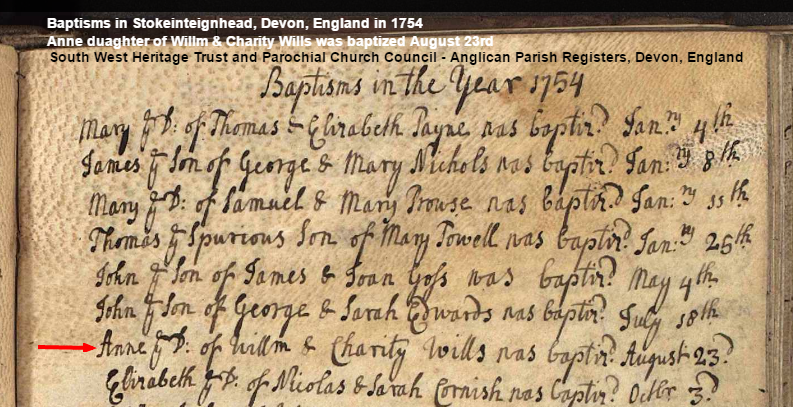 Baptisms in Stokeinteignhead, Devon, England in 1754
Anne duaghter of Willm & Charity Wills was baptized August 23rd
South West Heritage Trust and Parochial Church Council - Anglican Parish Registers, Devon, England
Baptisms in the Year 1754
Mary ye D: of Thomas & Elizabeth Payne was baptizd Jan:ry 4th
James ye Son of George & Mary Nichols was baptizd Jan:ry 8th
Mary ye D: of Samuel & Mary Prouse was baptizd Jan:ry 11th
Thomas ye Spurious Son of Mary Powell was baptizd Jan:ry 25th
John ye Son of James & Joan Goss was baptizd May 4th
John ye Son of George & Sarah Edwards was baptizd July 18th
Anne ye D: of Willm & Charity Wills was baptizd August 23d
Elizabeth ye D: of Nicolas & Sarah Cornish was baptizd Octbr 3d